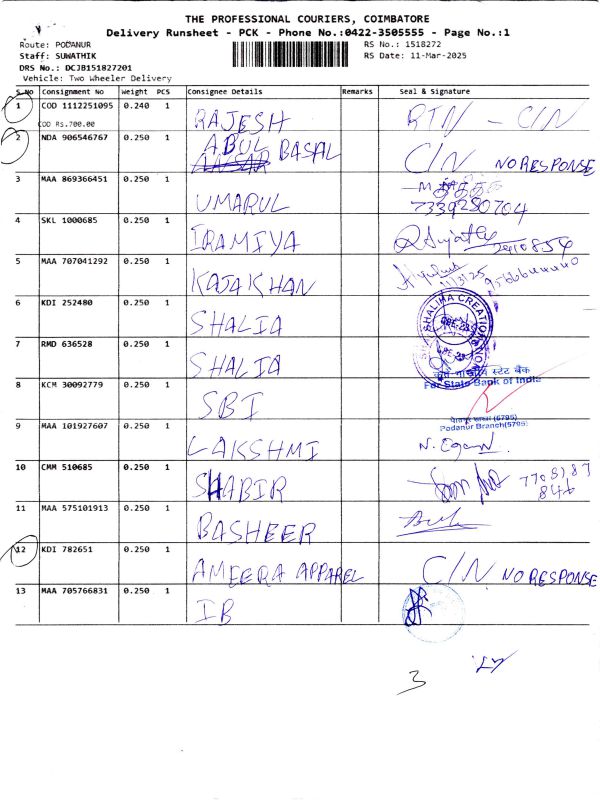 THE PROFESSIONAL COURIERS, COIMBATORE
Delivery Runsheet - PCK - Phone No.:0422-3505555 - Page No.:1
Route: PODANUR RS No.: 1518272
Staff: SUWATHIK RS Date: 11-Mar-2025
DRS No.: DCJB151827201
Vehicle: Two Wheeler Delivery
S.No Consignment No Weight PCS Consignee Details Remarks Seal & Signature
1 COD 1112251095 0.240 1 RAJESH RTN - C/N
COD RS.700.00
2 NDA 906546767 0.250 1 ABUL BASAL C/N NO RESPONSE
3 MAA 869366451 0.250 1 UMARUL
7339250704
4 SKL 1000685 0.250 1 IRAMIYA
5 MAA 707041292 0.250 1 KAJA KHAN 11/3/25
6 KDI 252480 0.250 1 SHALIA SHALIHA CREATION
7 RMD 636528 0.250 1 SHALIA
8 KCM 30092779 0.250 1 SBI
स्टेट बैंक
For State Bank of India
9 MAA 101927607 0.250 1 LAKSHMI
(5795)
Podanur Branch(5795)
10 CMM 510685 0.250 1 SHABIR 
11 MAA 575101913 0.250 1 BASHEER
12 KDI 782651 0.250 1 AMEERA APPAREL C/N NO RESPONSE
13 MAA 705766831 0.250 1 IB
3